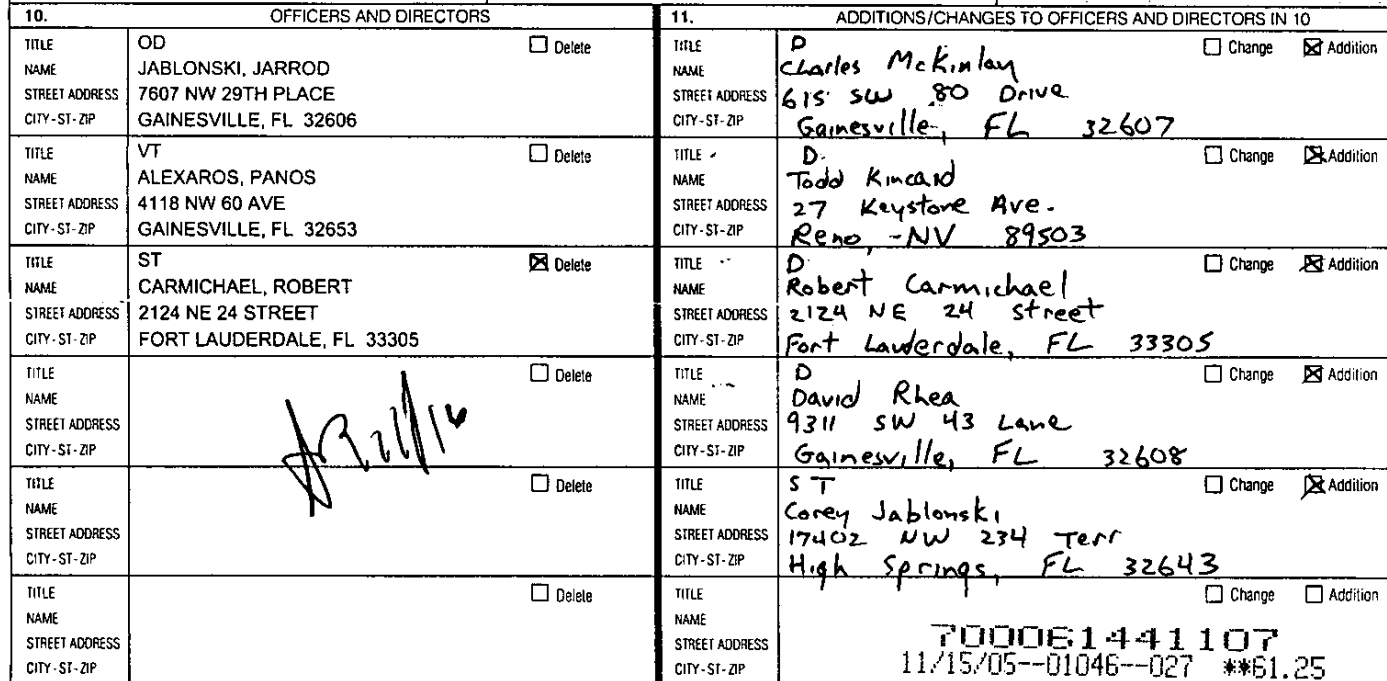 10. OFFICERS AND DIRECTORS
TITLE OD Delete
NAME JABLONSKI, JARROD
STREET ADDRESS 7607 NW 29TH PLACE
CITY-ST-ZIP GAINESVILLE, FL 32606
TITLE VT Delete
NAME ALEXAROS, PANOS
STREET ADDRESS 4118 NW 60 AVE
CITY-ST-ZIP GAINESVILLE, FL 32653
TITLE ST Delete
NAME CARMICHAEL, ROBERT
STREET ADDRESS 2124 NE 24 STREET
CITY-ST-ZIP FORT LAUDERDALE, FL 33305
TITLE Delete
NAME
STREET ADDRESS
CITY-ST-ZIP
TITLE Delete
NAME
STREET ADDRESS
CITY-ST-ZIP
TITLE Delete
NAME
STREET ADDRESS
CITY-ST-ZIP
11. ADDITIONS/CHANGES TO OFFICERS AND DIRECTORS IN 10
TITLE D Change Addition
NAME Charles McKinlay
STREET ADDRESS 615 SW 80 Drive
CITY-ST-ZIP Gainesville, FL 32607
TITLE D Change Addition
NAME Todd Kincard
STREET ADDRESS 27 Keystone Ave.
CITY-ST-ZIP Reno, -NV 89503
TITLE D Change Addition
NAME Robert Carmichael
STREET ADDRESS 2124 NE 24 street
CITY-ST-ZIP Fort Lauderdale, FL 33305
TITLE D Change Addition
NAME David Rhea
STREET ADDRESS 9311 SW 43 Lane
CITY-ST-ZIP Gainesville, FL 32608
TITLE S T Change Addition
NAME Corey Jablonski
STREET ADDRESS 17402 NW 234 Terr
CITY-ST-ZIP High Springs, FL 32643
TITLE Change Addition
NAME
STREET ADDRESS 700061441107
CITY-ST-ZIP 11/15/05--01046--027 **61.25